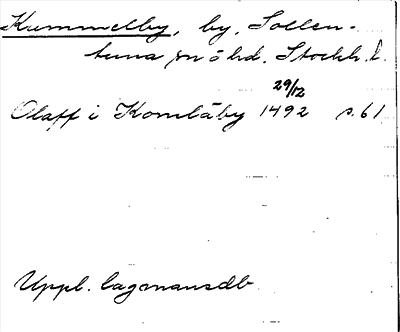 Kummelby, by, Sollen-
tuna sn o hd. Stockh. l.
29/12
Olaff i Komlaby 1492 s. 61
Uppl. lagmansdb